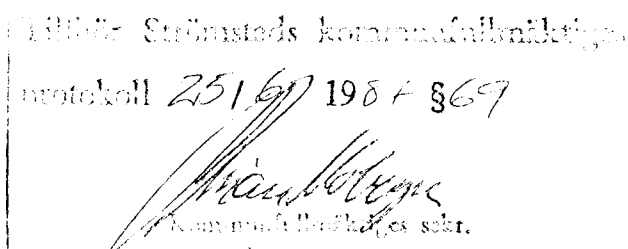 Tillhör Strömstads kommunfullmäktiges
protokoll 25/6 198 § 69
Kommunfullmäktiges sekr.